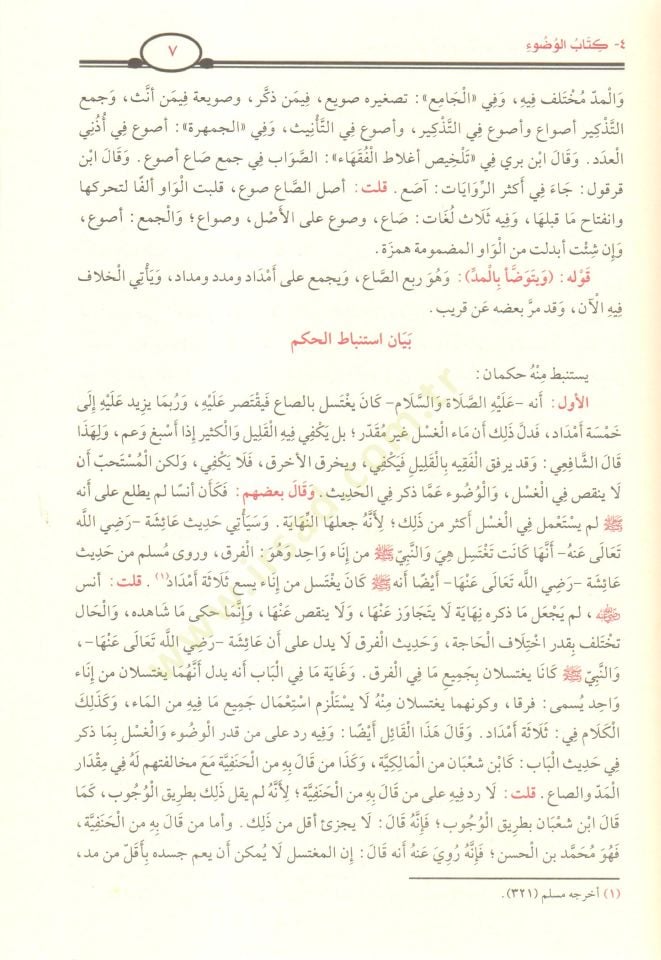 ٤- كِتَابُ الوُضُوءِ
٧
وَالْمدّ مُخْتَلف فِيهِ، وَفِي «الْجَامِع»: تصغيره صويع، فِيمَن ذكَّر، وصويعة فِيمَن أنَّث، وَجمع
التَّذْكِير أصواع وأصوع فِي التَّذْكِير، وأصوع فِي التَّأْنِيث، وَفِي «الجمهرة»: أصوع فِي أُدْنِي
الْعدَد. وَقَالَ ابْن بري فِي «تَلْخِيص أغلاط الْفُقَهَاء»: الصَّوَاب فِي جمع صَاع أصوع. وَقَالَ ابْن
قرقول: جَاءَ فِي أكثر الرِّوَايَات: آصَع. قلت: أصل الصَّاع صوع، قلبت الْوَاو ألفًا لتحركها
وانفتاح مَا قبلهَا، وَفِيه ثَلَاث لُغَات: صَاع، وصوع على الأَصْل، وصواع؛ وَالْجمع: أصوع،
وَإِن شِئْت أبدلت من الْوَاو المضمومة همزَة.
قَوْله: (وَيتَوَضَّأ بِالْمدِّ): وَهُوَ ربع الصَّاع، وَيجمع على أَمْدَاد ومدد ومداد، وَيَأْتِي الْخلاف
فِيهِ الْآن، وَقد مرَّ بعضه عَن قريب.
بَيَان استنباط الحكم
يستنبط مِنْهُ حكمان:
الأول: أنه -عَلَيْهِ الصَّلَاة وَالسَّلَام- كَانَ يغْتَسل بالصاع فَيقْتَصر عَلَيْهِ، وَرُبمَا يزِيد عَلَيْهِ إِلَى
خَمْسَة أَمْدَاد، فَدلَّ ذَلِك أَن مَاء الْغسْل غير مُقَدّر؛ بل يَكْفِي فِيهِ الْقَلِيل وَالْكثير إِذا أسبغ وَعم، وَلِهَذَا
قَالَ الشَّافِعِي: وَقد يرفق الْفَقِيه بِالْقَلِيلِ فَيَكْفِي، ويخرق الأخرق، فَلَا يَكْفِي، وَلَكِن الْمُسْتَحبّ أَن
لَا ينقص فِي الْغسْل، وَالْوُضُوء عَمَّا ذكر فِي الحَدِيث. وَقَالَ بعضهم: فَكَأَن أنسا لم يطلع على أَنه
ﷺ لم يسْتَعْمل فِي الْغسْل أكثر من ذَلِك؛ لِأَنَّهُ جعلهَا النِّهَايَة. وَسَيَأْتِي حَدِيث عَائِشَة -رَضِي الله
تَعَالَى عَنهُ- أَنَّهَا كَانَت تَغْتَسِل هِيَ وَالنَّبِيّ ﷺ من إِنَاء وَاحِد وَهُوَ: الْفرق، وروى مُسلم من حَدِيث
عَائِشَة -رَضِي الله تَعَالَى عَنْهَا- أَيْضًا أَنه ﷺ كَانَ يغْتَسل من إِنَاء يسع ثَلَاثَة أَمْدَاد(١). قلت: أنس
رضي الله عنه، لم يَجْعَل مَا ذكره نِهَايَة لَا يتَجَاوَز عَنْهَا، وَلَا ينقص عَنْهَا، وَإِنَّمَا حكى مَا شَاهده، وَالْحَال
تخْتَلف بِقدر اخْتِلَاف الْحَاجة، وَحَدِيث الْفرق لَا يدل على أَن عَائِشَة -رَضِي الله تَعَالَى عَنْهَا-،
وَالنَّبِيّ ﷺ كَانَا يغتسلان بِجَمِيعِ مَا فِي الْفرق. وَغَايَة مَا فِي الْبَاب أنه يدل أَنَّهُمَا يغتسلان من إِنَاء
وَاحِد يُسمى: فرقا، وكونهما يغتسلان مِنْهُ لَا يسْتَلْزم اسْتِعْمَال جَمِيع مَا فِيهِ من المَاء، وَكَذَلِكَ
الْكَلَام فِي: ثَلَاثَة أَمْدَاد. وَقَالَ هَذَا الْقَائِل أَيْضًا: وَفِيه رد على من قدر الْوضُوء وَالْغسْل بِمَا ذكر
فِي حَدِيث الْبَاب: كَابْن شعْبَان من الْمَالِكِيَّة، وَكَذَا من قَالَ بِهِ من الْحَنَفِيَّة مَعَ مخالفتهم لَهُ فِي مِقْدَار
الْمَدّ والصاع. قلت: لَا رد فِيهِ على من قَالَ بِهِ من الْحَنَفِيَّة؛ لِأَنَّهُ لم يقل ذَلِك بطرِيق الْوُجُوب، كَمَا
قَالَ ابْن شعْبَان بطرِيق الْوُجُوب؛ فَإِنَّهُ قَالَ: لَا يجزئ أقل من ذَلِك. وأما من قَالَ بِهِ من الْحَنَفِيَّة،
فَهُوَ مُحَمَّد بن الْحسن؛ فَإِنَّهُ رُوِيَ عَنهُ أَنه قَالَ: إِن المغتسل لَا يُمكن أَن يعم جسده بِأَقَلّ من مد،
(١) أخرجه مسلم (٣٢١).